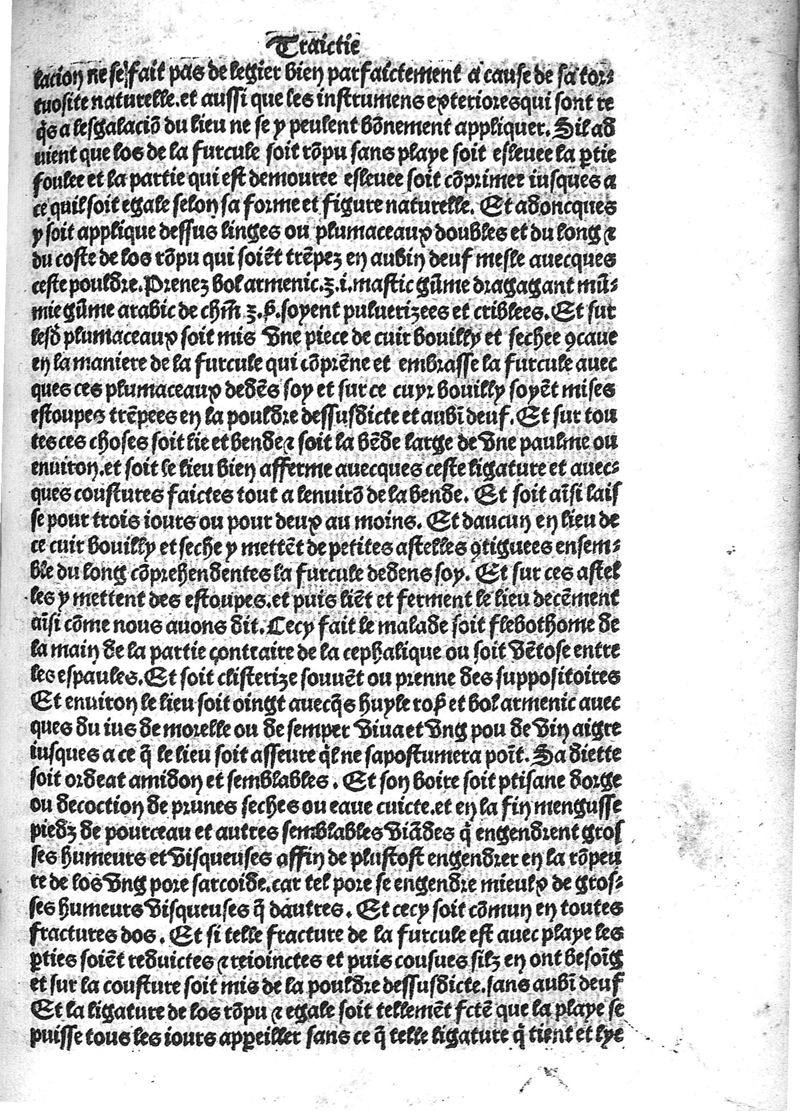 Traictie
lacion ne se fait pas de legier bien parfaictement a cause de sa tor⸗
tuosite naturelle.et aussi que les instrumens exterioresqui sont re
q̃s a lesgalaciõ du lieu ne se y peulent bõnement appliquer. Sil ad
uient que los de la furcule soit rõpu sans playe soit esleuee la ꝑtie
foulee et la partie qui est demouree esleuee soit cõprimee iusques a
ce quil soit egale selon sa forme et figure naturelle. Et adoncques
y soit applique dessus linges ou plumaceaux doubles et du long ⁊
du coste de los rõpu qui soiẽt trẽpez en aubin deuf mesle auecques
ceste pouldre. Prenez bol armenic.ʒ.i.mastic gũme dragagant mũ⸗
mie gũme arabic de chm̃ ʒ.ß.soyent puluerizees et criblees. Et sur
lesd plumaceaux soit mis vne piece de cuir bouilly et sechee ꝯcaue
en la maniere de la furcule qui cõprẽne et embrasse la furcule auec
ques ces plumaceaux dedẽs soy et sur ce cuyr bouilly soyẽt mises
estoupes trẽpees en la pouldre dessusdicte et aubĩ deuf. Et sur tou
tes ces choses soit lie et bende⁊ soit la bẽde large de vne paulme ou
enuiron.et soit le lieu bien afferme auecques ceste ligature et auec⸗
ques coustures faictes tout a lenuirõ de la bende. Et soit aĩsi lais
se pour trois iours ou pour deux au moins. Et daucun en lieu de
ce cuir bouilly et seche y mettẽt de petites astelles ꝯtiguees ensem⸗
ble du long cõprehendentes la furcule dedens soy. Et sur ces astel
les y mettent des estoupes.et puis liẽt et ferment le lieu decẽment
aĩsi cõme nous auons dit. Cecy fait le malade soit flebothome de
la main de la partie contraire de la cephalique ou soit vẽtose entre
les espaules. Et soit clisterize souuẽt ou prenne des suppositoires
Et enuiron le lieu soit oingt auecq̃s huyle roß et bol armenic auec
ques du ius de morelle ou de semper viua et vng pou de vin aigre
iusques a ce q̃ le lieu soit asseure q̃l ne sapostumera poĩt. Sa diette
soit ordeat amidon et semblables . Et son boire soit ptisane dorge
ou decoction de prunes seches ou eaue cuicte.et en la fin mengusse
piedz de pourceau et autres semblables viãdes q̃ engendrent gros
ses humeurs et visqueuses affin de plustost engendrer en la rõpeu
re de los vng pore sarcoide.car tel pore se engendre mieulx de gros⸗
ses humeurs visqueuses q̃ dautres . Et cecy soit cõmun en toutes
fractures dos . Et si telle fracture de la furcule est auec playe les
ꝑties soiẽt reduictes ⁊ reioinctes et puis cousues silz en ont besoĩg
et sur la cousture soit mis de la pouldre dessusdicte.sans aubĩ deuf
Et la ligature de los rõpu ⁊ egale soit tellemẽt fctẽ que la playe se
puisse tous les iours appeiller sans ce q̃ telle ligature q̃ tient et lye